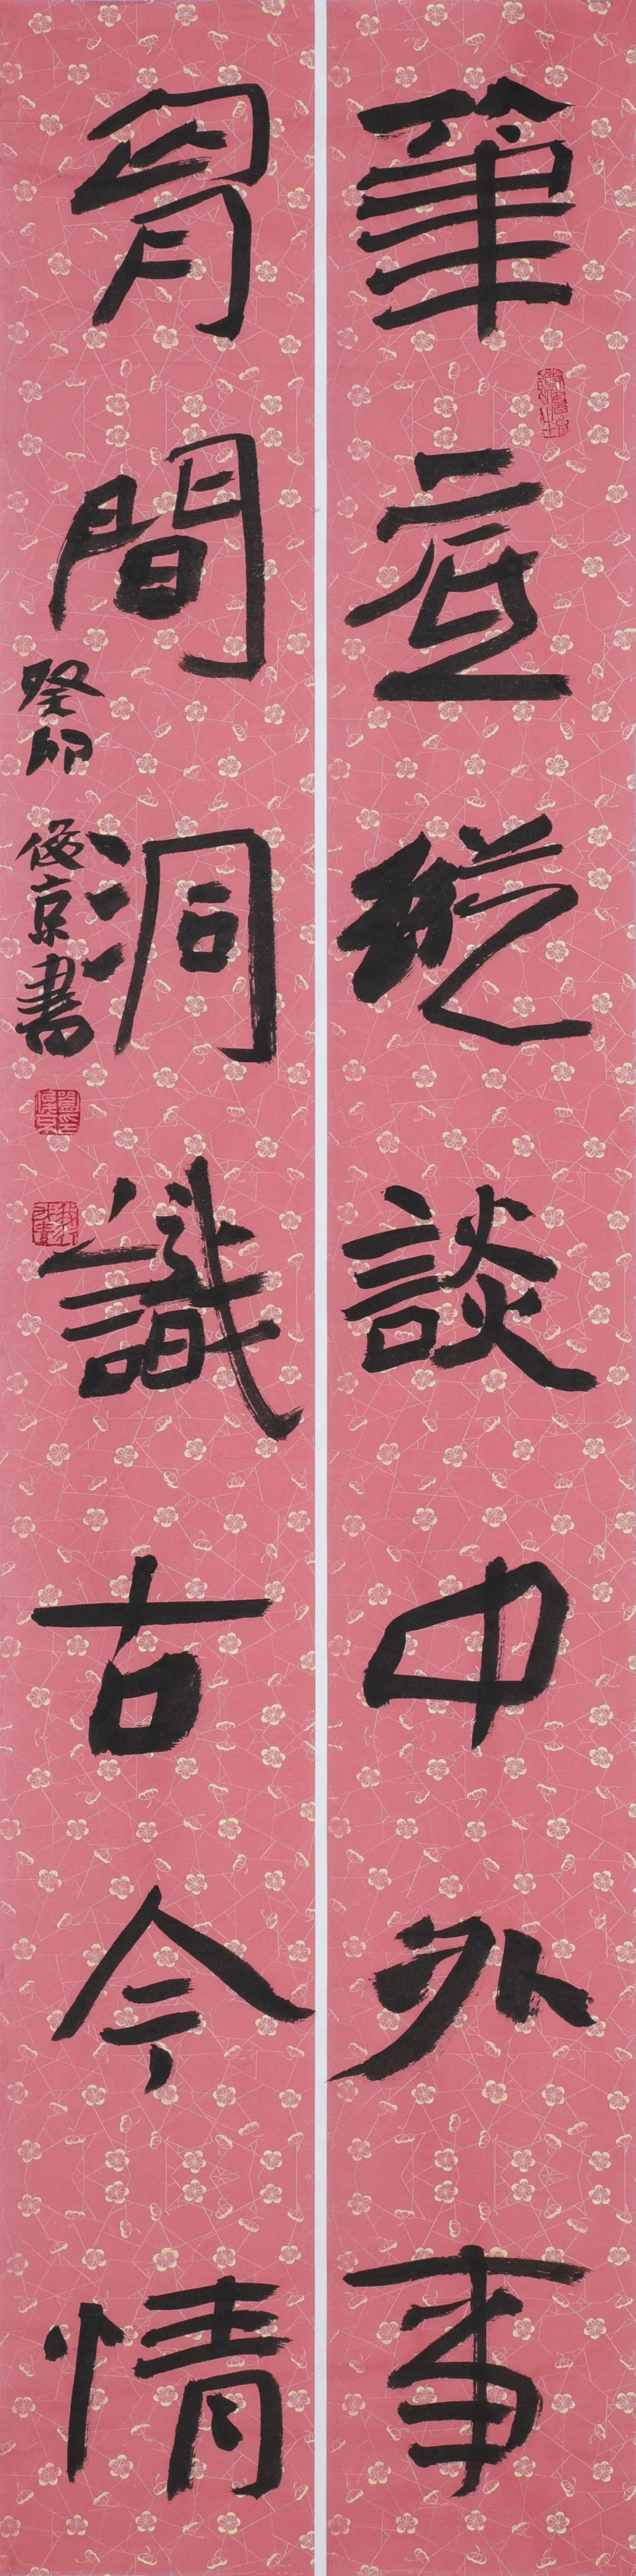 筆底縱談中外事
胷間洞識古今情
癸卯 俊京書